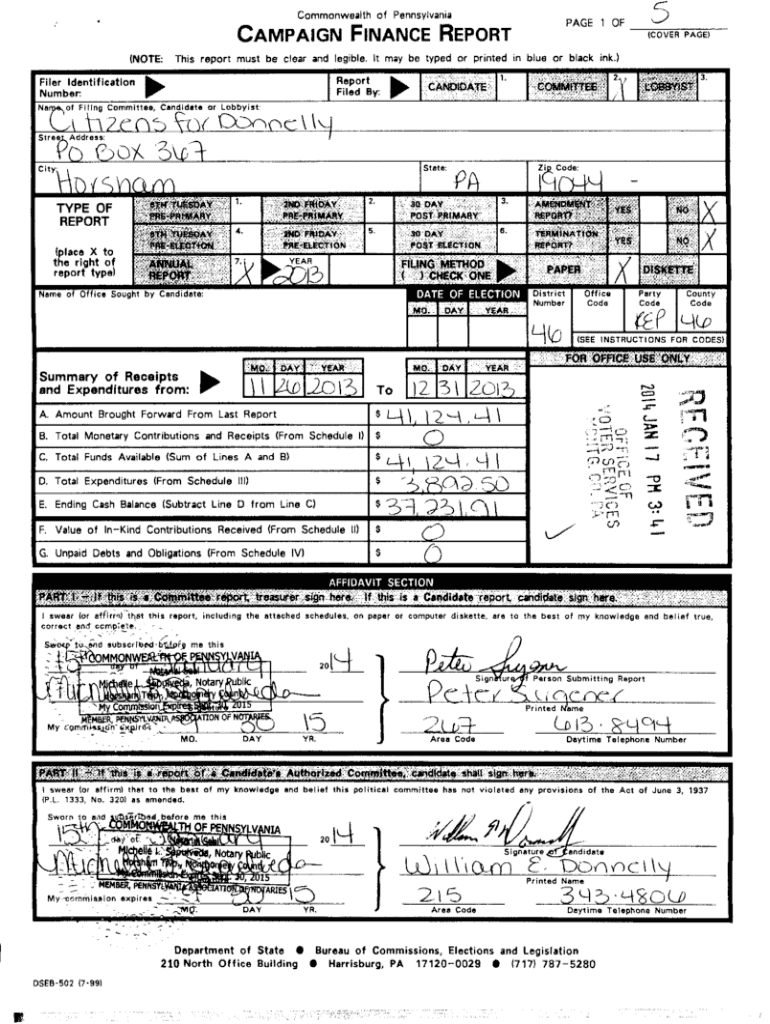 Commonwealth of Pennsylvania
CAMPAIGN FINANCE REPORT
PAGE 1 OF 5
(COVER PAGE)
(NOTE: This report must be clear and legible. It may be typed or printed in blue or black ink.)
Filer Identification Number:
Report Filed By:
CANDIDATE 1.
COMMITTEE 2. X
LOBBYIST 3.
Name of Filing Committee, Candidate or Lobbyist:
Citizens for Donnelly
Street Address:
PO BOX 367
City: Horsham
State: PA
Zip Code: 19044 -
TYPE OF REPORT
(place X to the right of report type)
6TH TUESDAY PRE-PRIMARY 1.
2ND FRIDAY PRE-PRIMARY 2.
30 DAY POST PRIMARY 3.
AMENDMENT REPORT? YES NO X
6TH TUESDAY PRE-ELECTION 4.
2ND FRIDAY PRE-ELECTION 5.
30 DAY POST ELECTION 6.
TERMINATION REPORT? YES NO X
ANNUAL REPORT 7. X YEAR 2013
FILING METHOD ( ) CHECK ONE
PAPER X DISKETTE
Name of Office Sought by Candidate:
DATE OF ELECTION
MO. DAY YEAR
District Number 46
Office Code
Party Code REP
County Code 46
(SEE INSTRUCTIONS FOR CODES)
FOR OFFICE USE ONLY
Summary of Receipts and Expenditures from:
MO. DAY YEAR
11 26 2013
To
MO. DAY YEAR
12 31 2013
A. Amount Brought Forward From Last Report $ 41,124.41
B. Total Monetary Contributions and Receipts (From Schedule I) $ 0
C. Total Funds Available (Sum of Lines A and B) $ 41,124.41
D. Total Expenditures (From Schedule III) $ 3,892.50
E. Ending Cash Balance (Subtract Line D from Line C) $ 37,231.91
F. Value of In-Kind Contributions Received (From Schedule II) $ 0
G. Unpaid Debts and Obligations (From Schedule IV) $ 0
RECEIVED
2014 JAN 17 PM 3:41
OFFICE OF
VOTER SERVICES
MONTG. CO. PA
AFFIDAVIT SECTION
PART I - If this is a Committee report, treasurer sign here. If this is a Candidate report, candidate sign here.
I swear (or affirm) that this report, including the attached schedules, on paper or computer diskette, are to the best of my knowledge and belief true,
correct and complete.
Sworn to and subscribed before me this
15th day of January 2014
COMMONWEALTH OF PENNSYLVANIA
Notarial Seal
Michelle L. Sepulveda, Notary Public
Horsham Twp., Montgomery County
My Commission Expires Sept. 30, 2015
MEMBER, PENNSYLVANIA ASSOCIATION OF NOTARIES
My commission expires 9 30 15
MO. DAY YR.
Signature of Person Submitting Report
Printed Name
267 613-8494
Area Code Daytime Telephone Number
PART II - If this is a report of a Candidate's Authorized Committee, candidate shall sign here.
I swear (or affirm) that to the best of my knowledge and belief this political committee has not violated any provisions of the Act of June 3, 1937
(P.L. 1333, No. 320) as amended.
Sworn to and subscribed before me this
15th day of January 2014
COMMONWEALTH OF PENNSYLVANIA
Notarial Seal
Michelle L. Sepulveda, Notary Public
Horsham Twp., Montgomery County
My Commission Expires Sept. 30, 2015
MEMBER, PENNSYLVANIA ASSOCIATION OF NOTARIES
My commission expires 9 30 15
MO. DAY YR.
Signature of Candidate
William E. Donnelly
Printed Name
215 343-4806
Area Code Daytime Telephone Number
Department of State ● Bureau of Commissions, Elections and Legislation
210 North Office Building ● Harrisburg, PA 17120-0029 ● (717) 787-5280
DSEB-502 (7-99)